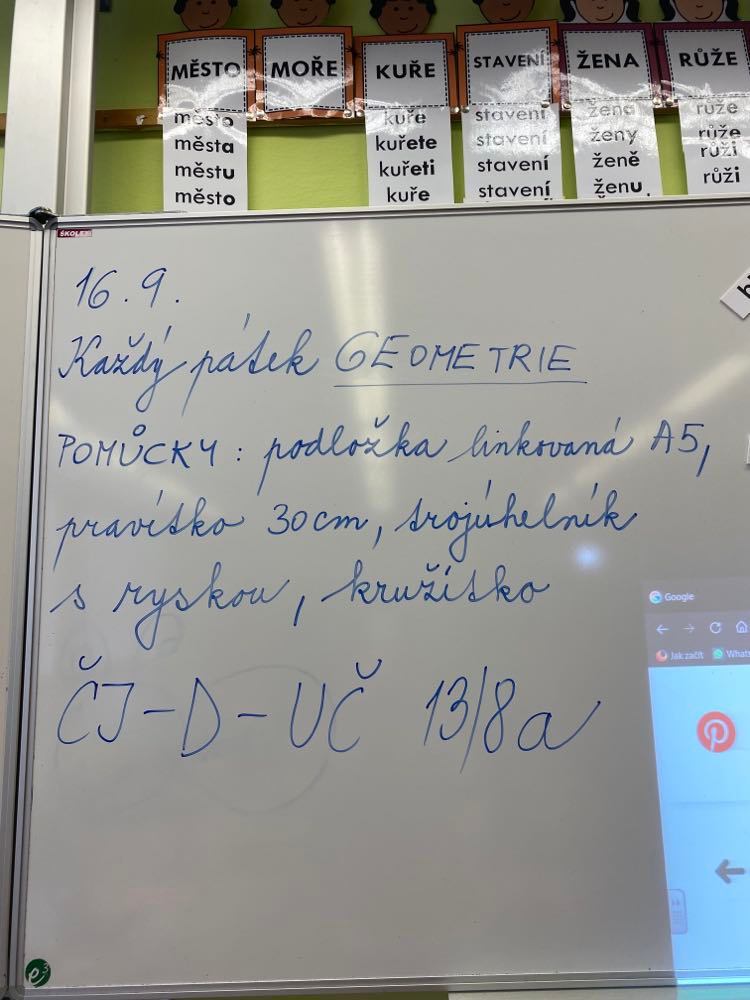 MĚSTO MOŘE KUŘE STAVENÍ ŽENA RŮŽE
město kuře stavení žena růže
města kuřete stavení ženy růže
městu kuřeti stavení ženě růži
město kuře stavení ženu růži
ŠKOLEX
16.9.
Každý pátek GEOMETRIE
POMŮCKY: podložka linkovaná A5,
pravítko 30cm, trojúhelník
s ryskou, kružítko
ČJ-D-UČ 13/8a
Google
Jak začít
e3